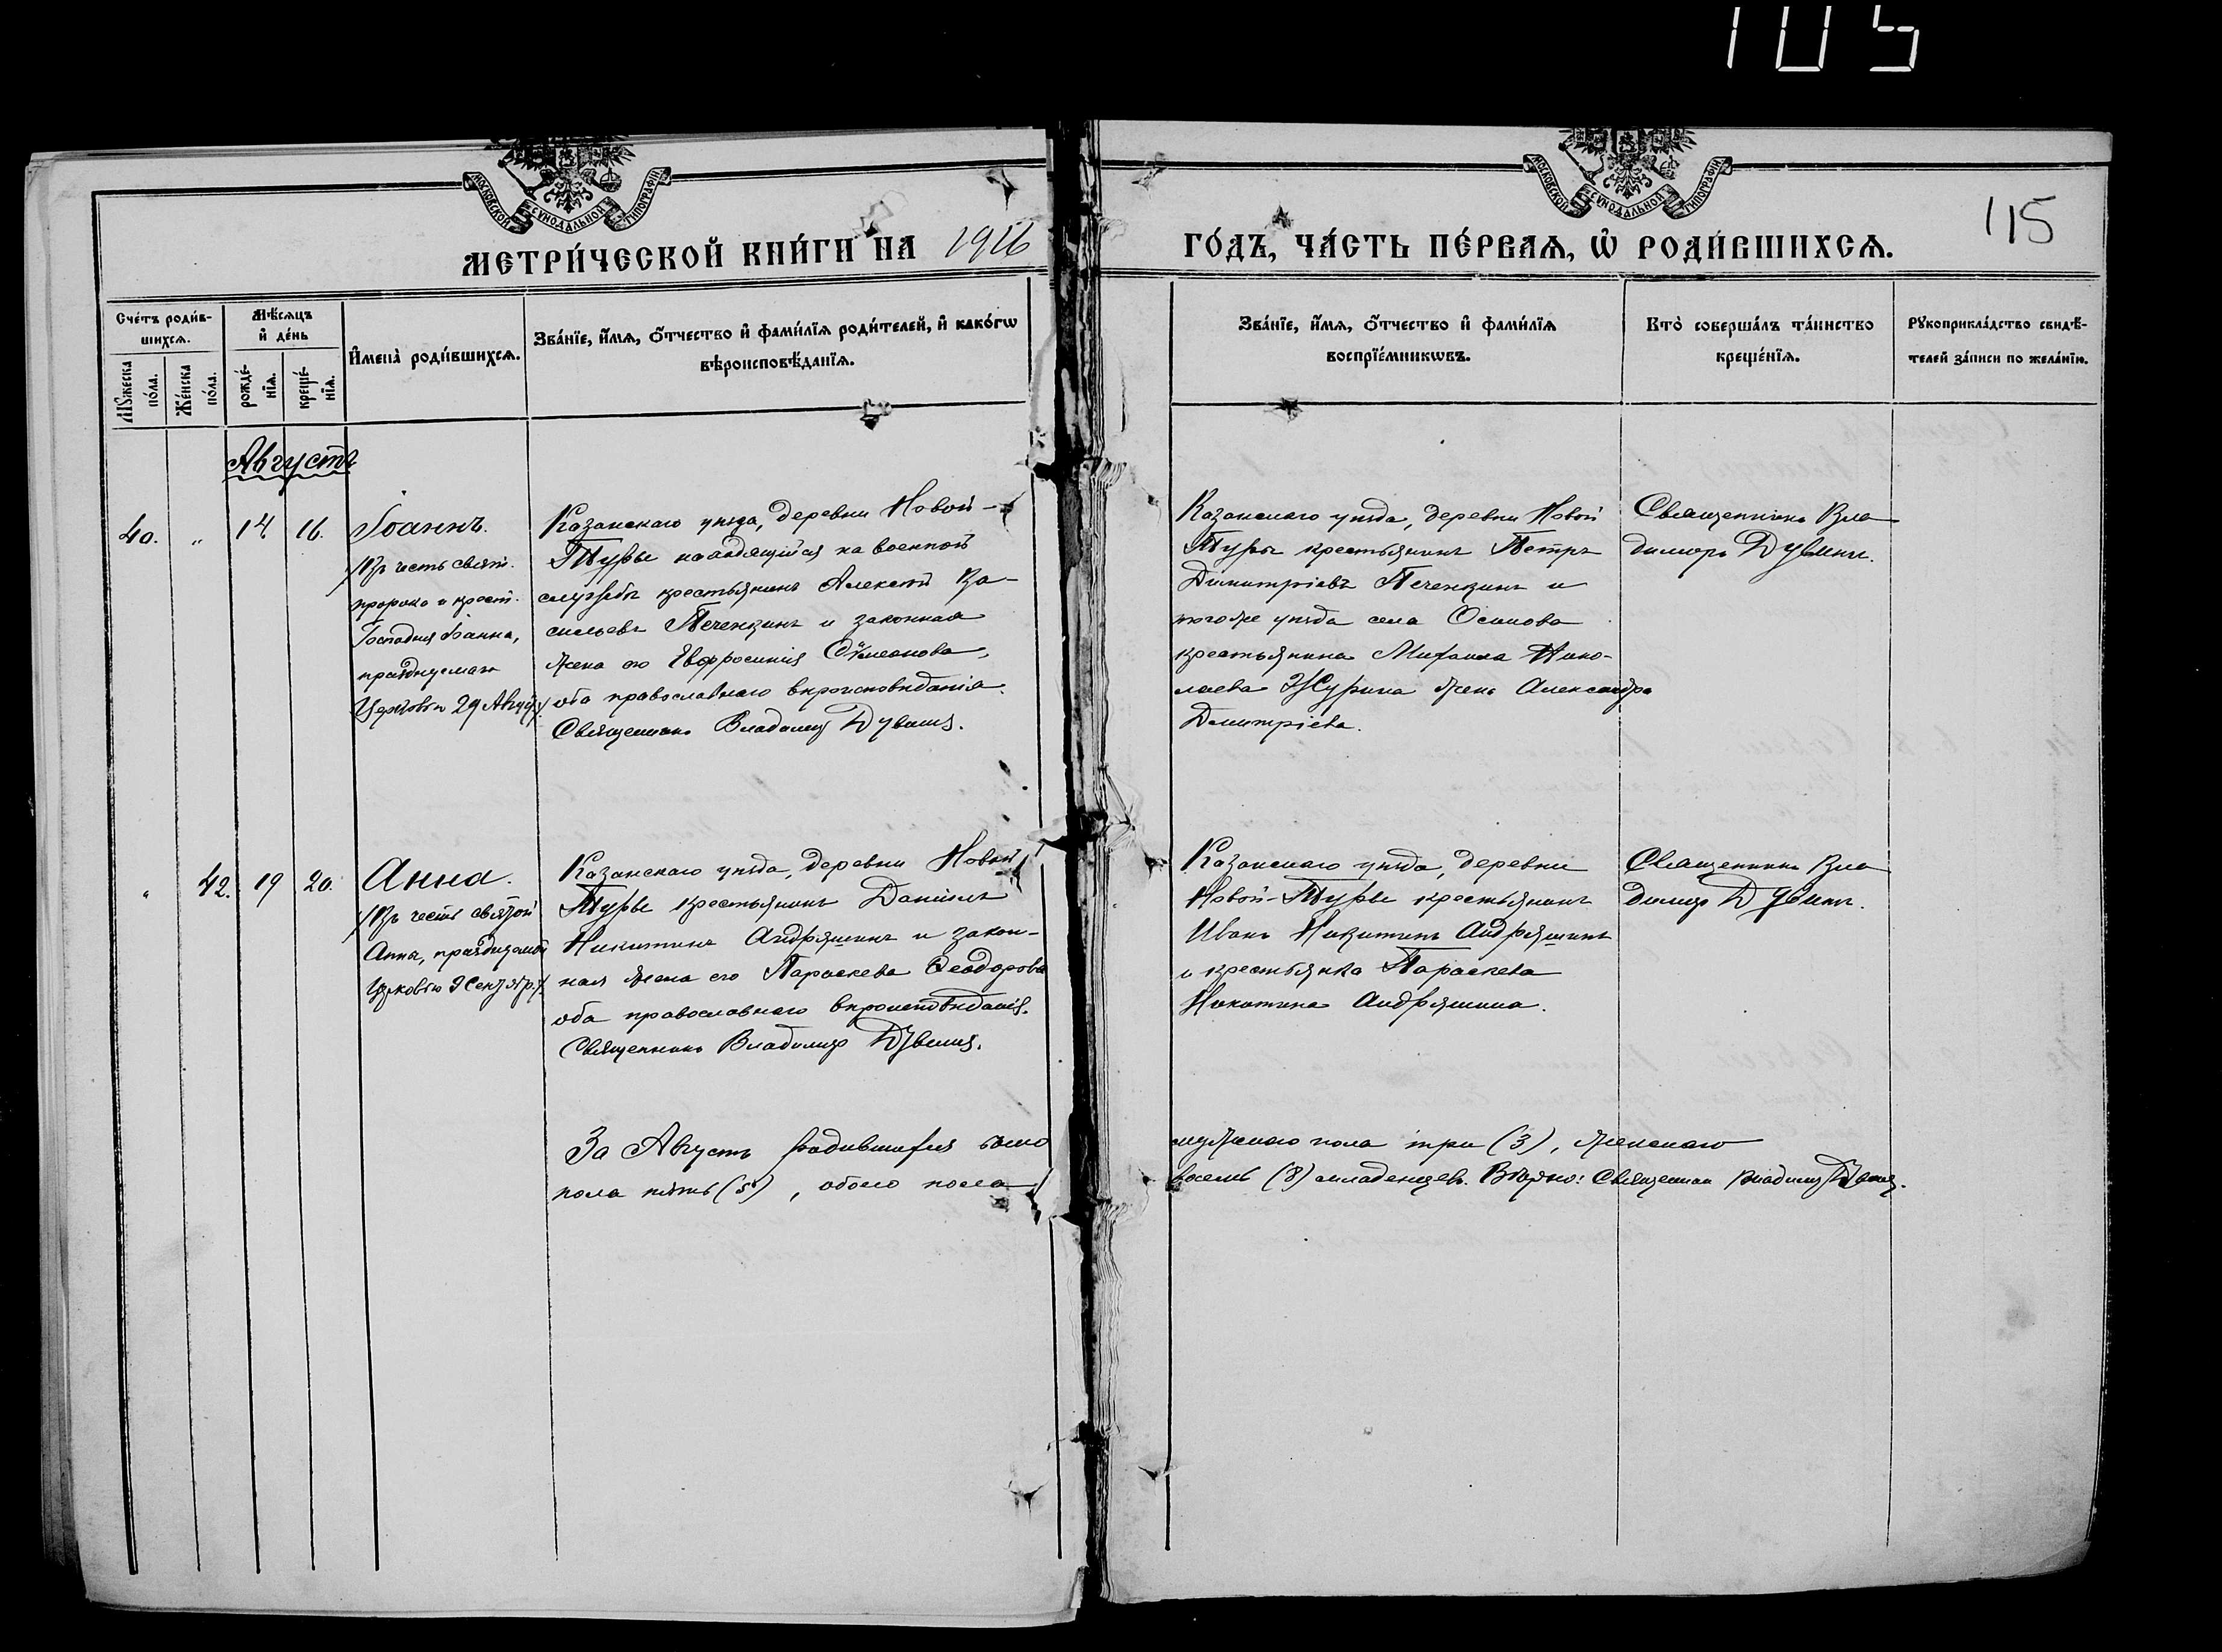 105
115
МОСКОВСКОЙ СѴНОДАЛЬНОЙ ТИПОГРАФІИ
МОСКОВСКОЙ СѴНОДАЛЬНОЙ ТИПОГРАФІИ
МЕТРИ́ЧЕСКОЙ КНИ́ГИ НА 1916
ГО́ДЪ, ЧА́СТЬ ПЕ́РВАѦ, Ѡ҆ РОДИ́ВШИХСѦ.
Сче́тъ роди́в-
шихсѧ.
Мꙋ́жеска по́ла.
Же́нска по́ла.
Мѣ́сѧцъ
и҆ де́нь
рожде́-
нїѧ.
креще́-
нїѧ.
И҆мена̀ роди́вшихсѧ.
Зва́нїе, и҆́мѧ, ѻ҆́тчество и҆ фами́лїѧ роди́телей, и҆ како́гѡ
вѣроисповѣ́данїѧ.
Зва́нїе, и҆́мѧ, ѻ҆́тчество и҆ фами́лїѧ
воспрїе́мникѡвъ.
Кто̀ соверша́лъ та́инство
креще́нїѧ.
Рꙋкоприкла́дство свидѣ́-
телей за́писи по жела́нїю.
Августъ
40. „ 14 16.
Іоаннъ.
/Въ честь свят.
пророка и крест.
Господня Іоанна,
празднуемаго
Церковью 29 Август./
Казанскаго уѣзда, деревни Новой-
Туры находящійся на военной
службѣ крестьянинъ Алексѣй Ва-
сильевъ Печенкинъ и законная
жена его Евфросинія Сѵмеонова,
оба православнаго вѣроисповѣданія.
Священникъ Владимір Дувинъ.
Казанскаго уѣзда, деревни Новой
Туры крестьянинъ Петръ
Димитріевъ Печенкинъ и
того же уѣзда села Осинова
крестьянина Михаила Нико-
лаева Журина жена Александра
Димитріева.
Священникъ Вла
диміръ Дувинъ.
„ 42. 19 20.
Анна.
/Въ честь святой
Анны, празднуемой
Церковью 9 Сентябр./
Казанскаго уѣзда, деревни Новой
Туры крестьянинъ Даніилъ
Никитинъ Андряшинъ и закон-
ная жена его Параскева Ѳеодорова
оба православнаго вѣроисповѣданія.
Священникъ Владиміръ Дувинъ.
Казанскаго уѣзда, деревни
Новой-Туры крестьянинъ
Иванъ Никитинъ Андряшинъ
и крестьянка Параскева
Никитина Андряшина.
Священникъ Вла
диміръ Дувинъ.
За Августъ родившихся было
мужескаго пола три (3), женскаго
пола пять (5), обоего пола
восемь (8) младенцевъ. Вѣрно: Священник Владимір Дувинъ.